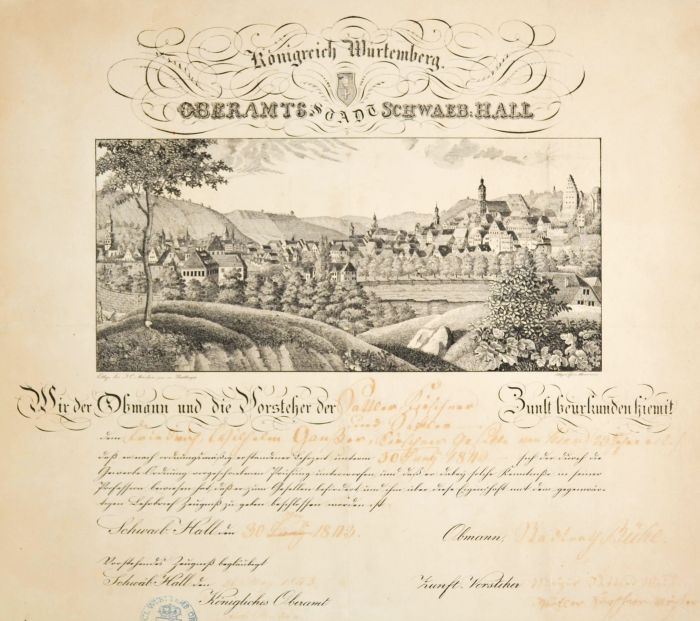 Königreich Würtemberg.
OBERAMTS STADT SCHWAEB: HALL
Wir der Obmann und die Vorsteher der Sattler Kürschner Zunft beurkunden hiemit
und Seckler
dem Friedrich Wilhelm
daß er nach ordnungsmäßig erstandener Lehrzeit unterm 30 Juny 1843 sich der durch die
Gewerbe-Ordnung vorgeschriebenen Prüfung unterworfen und daß er dabey solche Kenntniße in seiner
Profession bewiesen hat, daß er zum Gesellen befördert und ihm über diese Eigenschaft mit dem gegenwär-
tigen Lehrbrief Zeugniß zu geben beschlossen worden ist
Schwäb. Hall den 30 Juny 1843. Obmann: Stadtrath
Vorstehendes Zeugniß beglaubigt
Schwäb. Hall den 1843. Zunft-Vorsteher
Königliches Oberamt